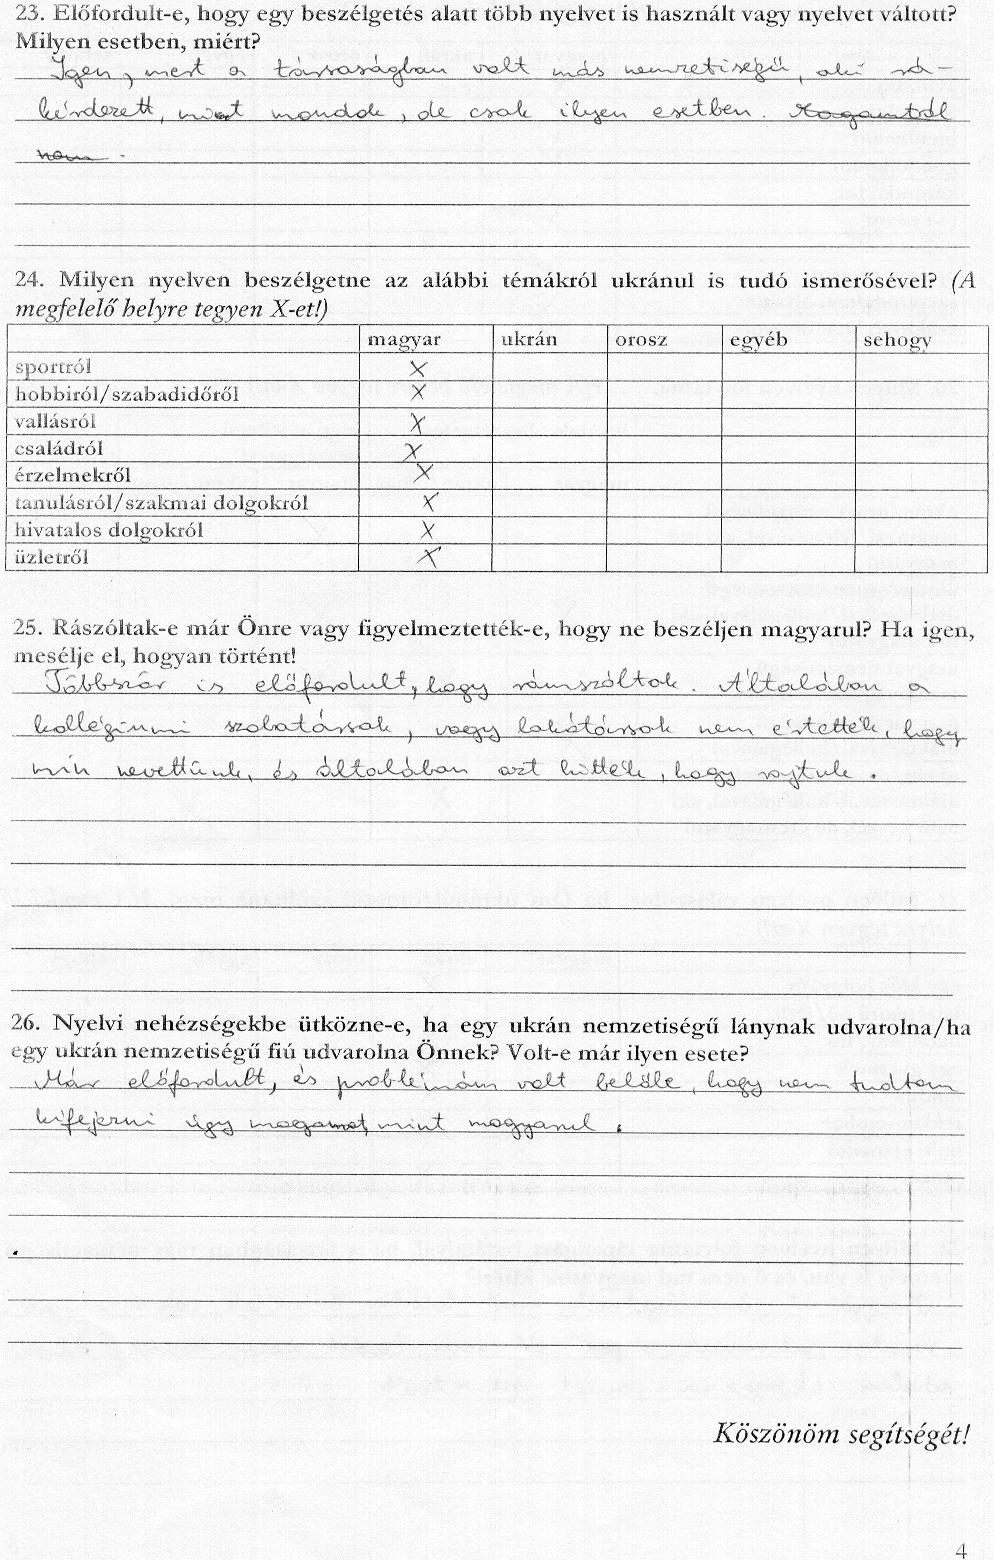 23. Előfordult-e, hogy egy beszélgetés alatt több nyelvet is használt vagy nyelvet váltott?
Milyen esetben, miért?
Igen, mert a társaságban volt más nemzetiségű, aki rá-
kérdezett, miket mondok, de csak ilyen esetben. Magamtól
nem.
24. Milyen nyelven beszélgetne az alábbi témákról ukránul is tudó ismerősével? (A
megfelelő helyre tegyen X-et!)
magyar ukrán orosz egyéb sehogy
sportról X
hobbiról/szabadidőről X
vallásról X
családról X
érzelmekről X
tanulásról/szakmai dolgokról X
hivatalos dolgokról X
üzletről X
25. Rászóltak-e már Önre vagy figyelmeztették-e, hogy ne beszéljen magyarul? Ha igen,
mesélje el, hogyan történt!
Többször is előfordult, hogy rámszóltak. Általában a
kollégiumi szobatársak, vagy lakótársak nem értették, hogy
min nevettünk, és általában azt hitték, hogy rajtuk.
26. Nyelvi nehézségekbe ütközne-e, ha egy ukrán nemzetiségű lánynak udvarolna/ha
egy ukrán nemzetiségű fiú udvarolna Önnek? Volt-e már ilyen esete?
Már előfordult, és problémám volt belőle, hogy nem tudtam
kifejezni úgy magamat, mint magyarul.
Köszönöm segítségét!
4